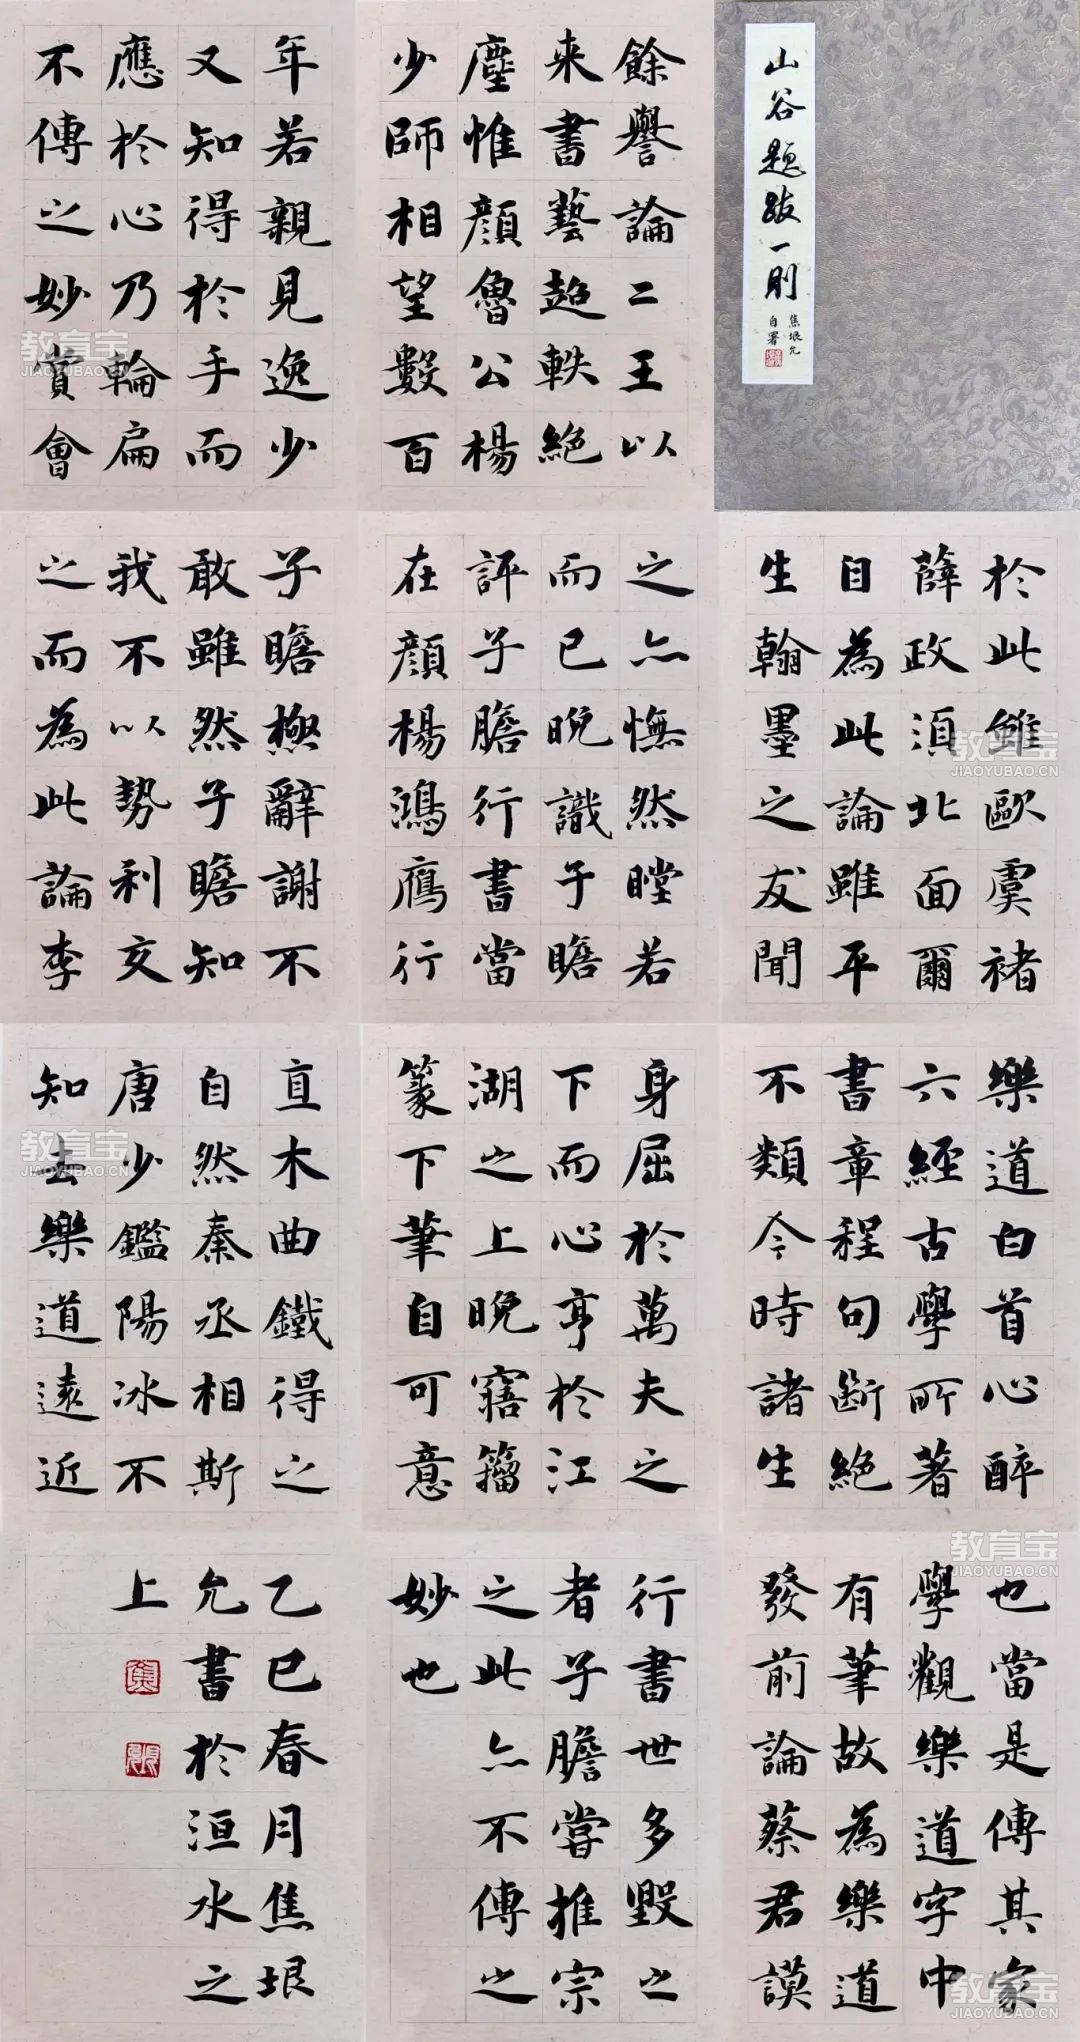 山谷題跋一則
焦垠允
自署
餘譽論二王以
来書藝超軼絕
塵惟顏魯公楊
少師相望數百
年若親見逸少
又知得於手而
應於心乃輪扁
不傳之妙賞會
於此雖歐虞褚
薛政須北面爾
自為此論雖平
生翰墨之友聞
之亦憮然瞠若
而已晚識子瞻
評子瞻行書當
在顏楊鴻鴈行
子瞻極辭謝不
敢雖然子瞻知
我不以勢利交
之而為此論李
樂道白首心醉
六經古學所著
書章程句斷絕
不類今時諸生
身屈於萬夫之
下而心亨於江
湖之上晚寤籀
篆下筆自可意
直木曲鐵得之
自然秦丞相斯
唐少鑑陽冰不
知去樂道遠近
也當是傳其家
學觀樂道字中
有筆故為樂道
發前論蔡君謨
行書世多毀之
者子瞻嘗推宗
之此亦不傳之
妙也
乙巳春月焦垠
允書於洹水之
上
教育宝
JIAOYUBAO.CN
教育宝
JIAOYUBAO.CN
教育宝
JIAOYUBAO.CN
教育宝
JIAOYUBAO.CN
教育宝
JIAOYUBAO.CN